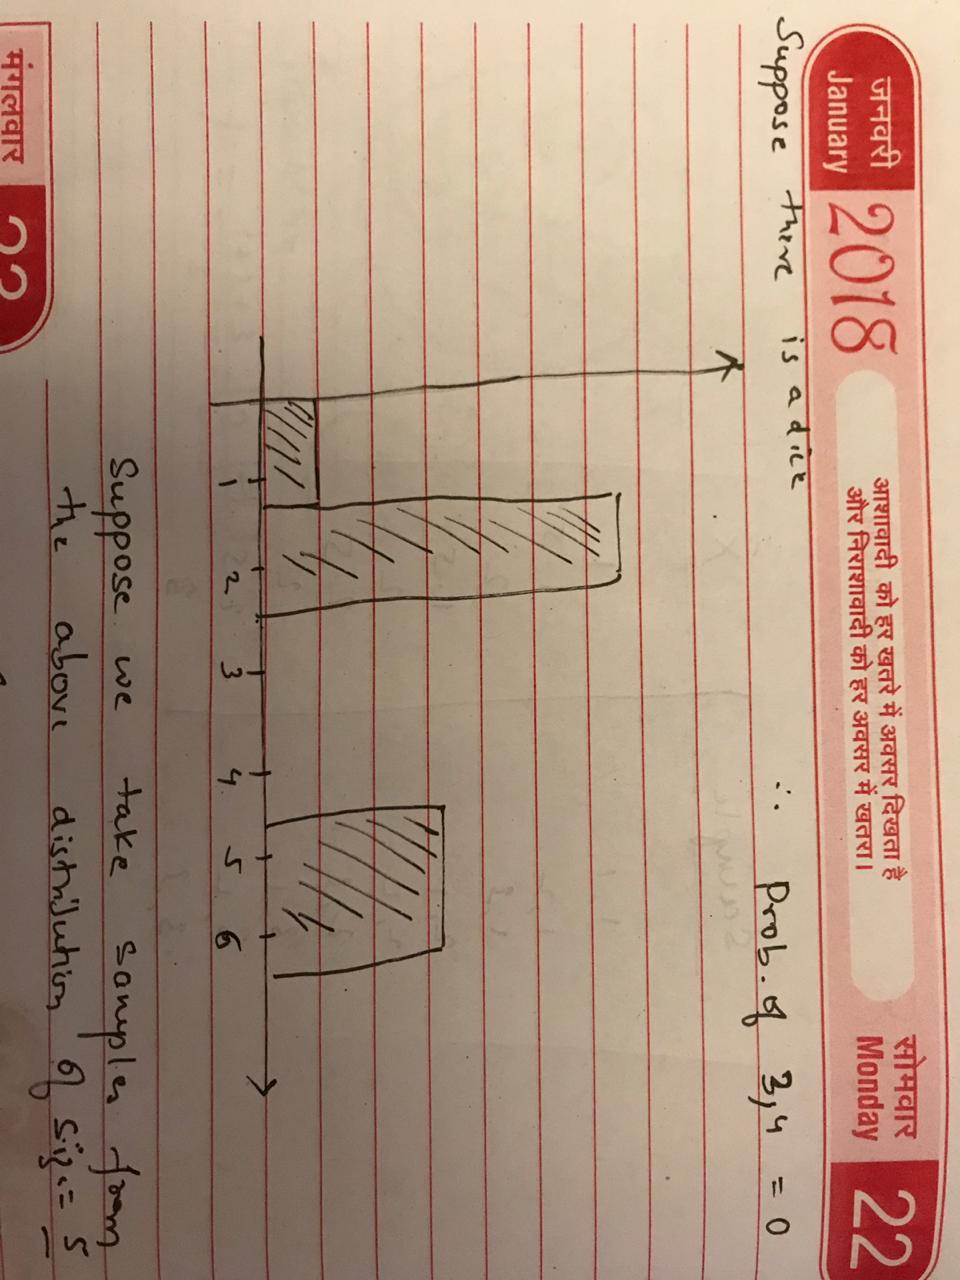 जनवरी
January
2018
आशावादी को हर खतरे में अवसर दिखता है
और निराशावादी को हर अवसर में खतरा।
सोमवार
Monday
22
Suppose there is a dice
∴ Prob. of 3,4 = 0
1 2 3 4 5 6
Suppose we take samples from
the above distribution of size = 5
मंगलवार